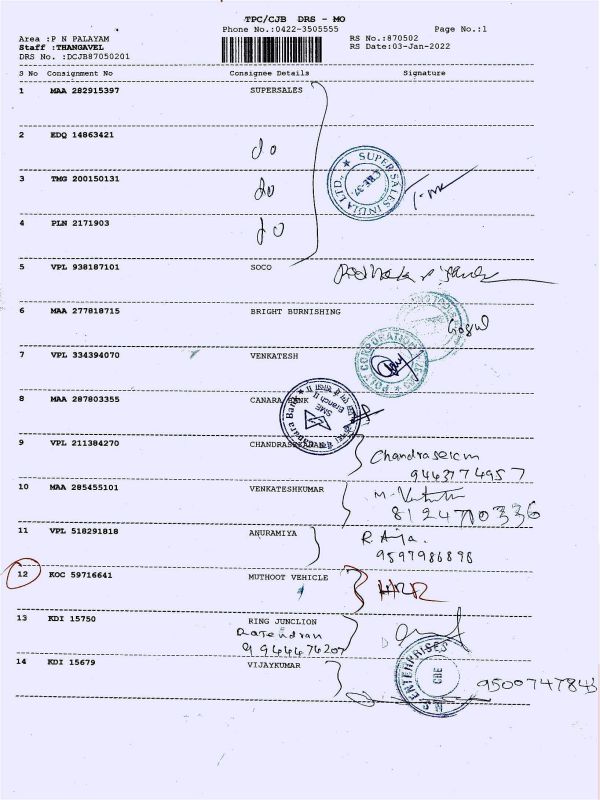 TPC/CJB DRS - MO
Phone No.:0422-3505555
Page No.:1
Area : P N PALAYAM
Staff : THANGAVEL
DRS No. :DCJB87050201
RS No.:870502
RS Date:03-Jan-2022
S No Consignment No Consignee Details Signature
1 MAA 282915397 SUPERSALES
2 EDQ 14863421
do
3 TMG 200150131
do
4 PLN 2171903
do
SUPER SALES INDIA LTD. ★ CBE-37
5 VPL 938187101 SOCO
6 MAA 277818715 BRIGHT BURNISHING
Gogul
7 VPL 334394070 VENKATESH
CORPORATION
8 MAA 287803355 CANARA BANK
SME Branch II
9 VPL 211384270 CHANDRASEKARAN
Chandrasekar
9443774957
10 MAA 285455101 VENKATESHKUMAR
8124710336
11 VPL 518291818 ANURAMIYA
9597986898
12 KOC 59716641 MUTHOOT VEHICLE
13 KDI 15750 RING JUNCLION
Rajendran
9944476207
14 KDI 15679 VIJAYKUMAR
ENTERPRISES CBE
9500747843